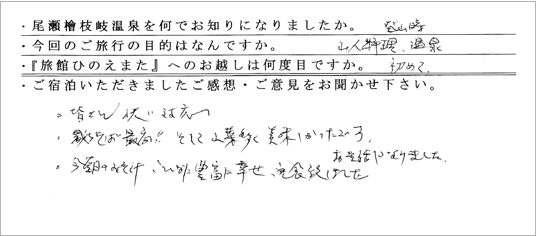 ・尾瀬檜枝岐温泉を何でお知りになりましたか。 登山時
・今回のご旅行の目的はなんですか。 山人料理、温泉
・『旅館ひのえまた』へのお越しは何度目ですか。 初めて
・ご宿泊いただきましたご感想・ご意見をお聞かせ下さい。
。皆さん
最高!! そして 美味しかったです。
お世話になりました。
。今朝の 豊富に幸せ、完食